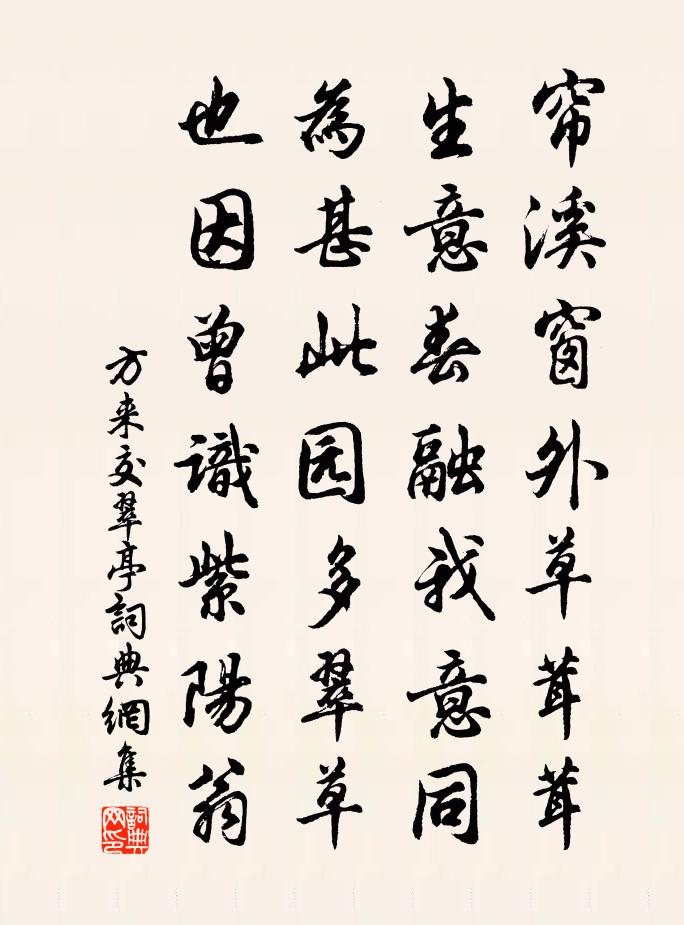 帘溪窗外草茸茸
生意春融我意同
為甚此园多翠草
也因曾識紫陽翁
方来交翠亭詞典網集
詞典网印